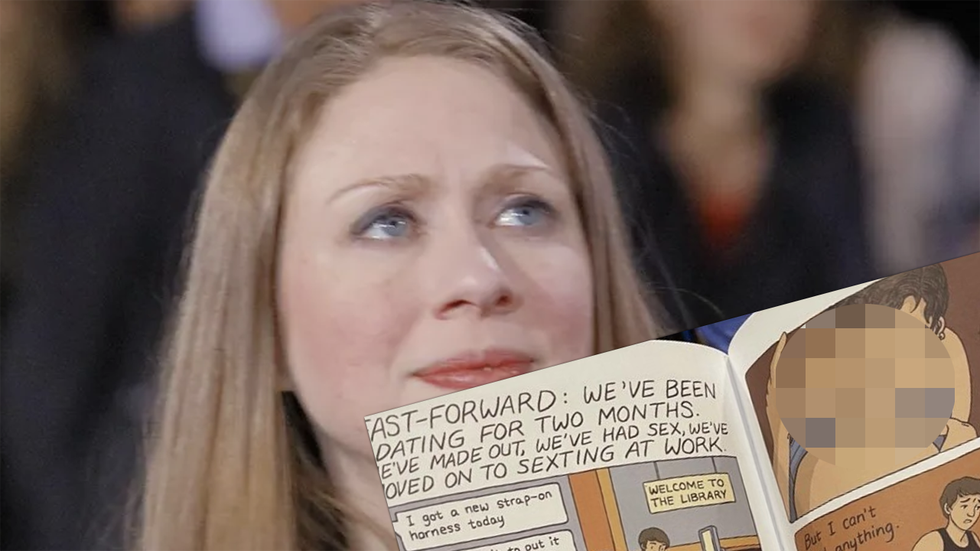 AST-FORWARD: WE'VE BEEN
DATING FOR TWO MONTHS.
E'VE MADE OUT, WE'VE HAD SEX, WE'VE
OVED ON TO SEXTING AT WORK.
I got a new strap-on
harness today
put it
WELCOME TO
THE LIBRARY
But I can't
anything.